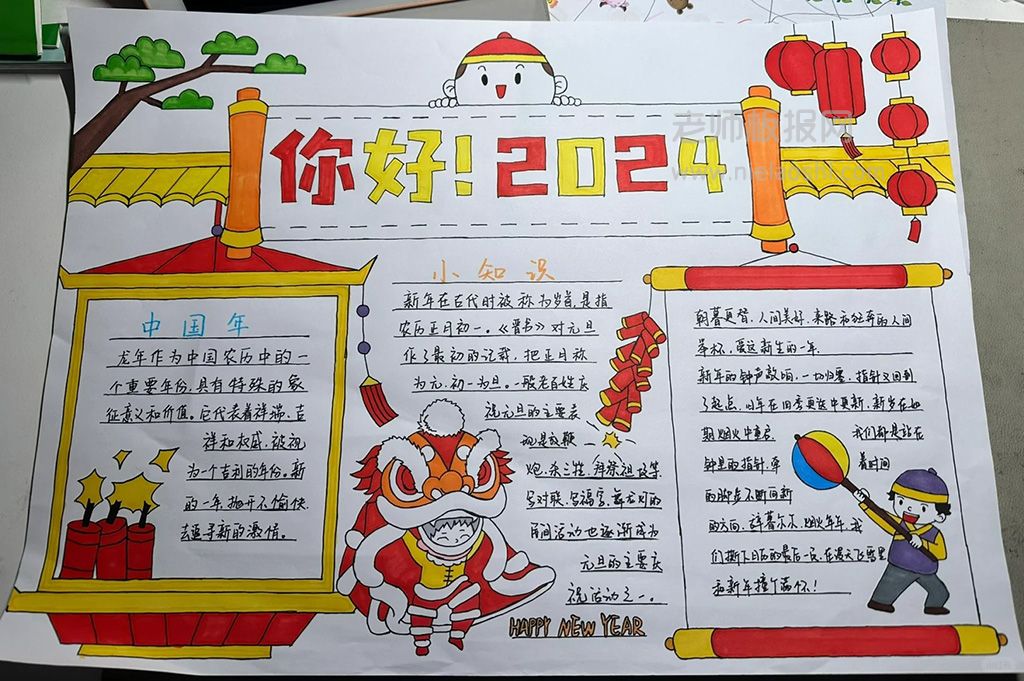 你好!2024
老师板报网
中国年
龙年作为中国农历中的一
个重要年份,具有特殊的象
征意义和价值。它代表着祥瑞、吉
祥和权威,被视
为一个吉利的年份。新
的一年,抛开不愉快
去追寻新的激情。
小知识
新年在古代时被称为岁首,是指
农历正月初一。《晋书》对元旦
作了最初的记载,把正月称
为元,初一为旦。一般老百姓庆
祝元旦的主要表
现是放鞭
炮、杀三牲、拜祭祖
写对联、写福字、
民间活动也逐渐成为
元旦的主要庆
祝活动之一。
HAPPY NEW YEAR
朝暮更替,人间美好,来路
举杯,爱这新生的一年
新年的钟声敲响,一切归零,指针又回到
了起点,旧年在旧
期烟火中重启 我们都是站在
钟里的指针,牵 着时间
的脚步不断向新
的方向,辞暮尔尔,烟火年年,我
们撕下日历的最后一页,在漫天飞雪里
和新年撞个满怀!